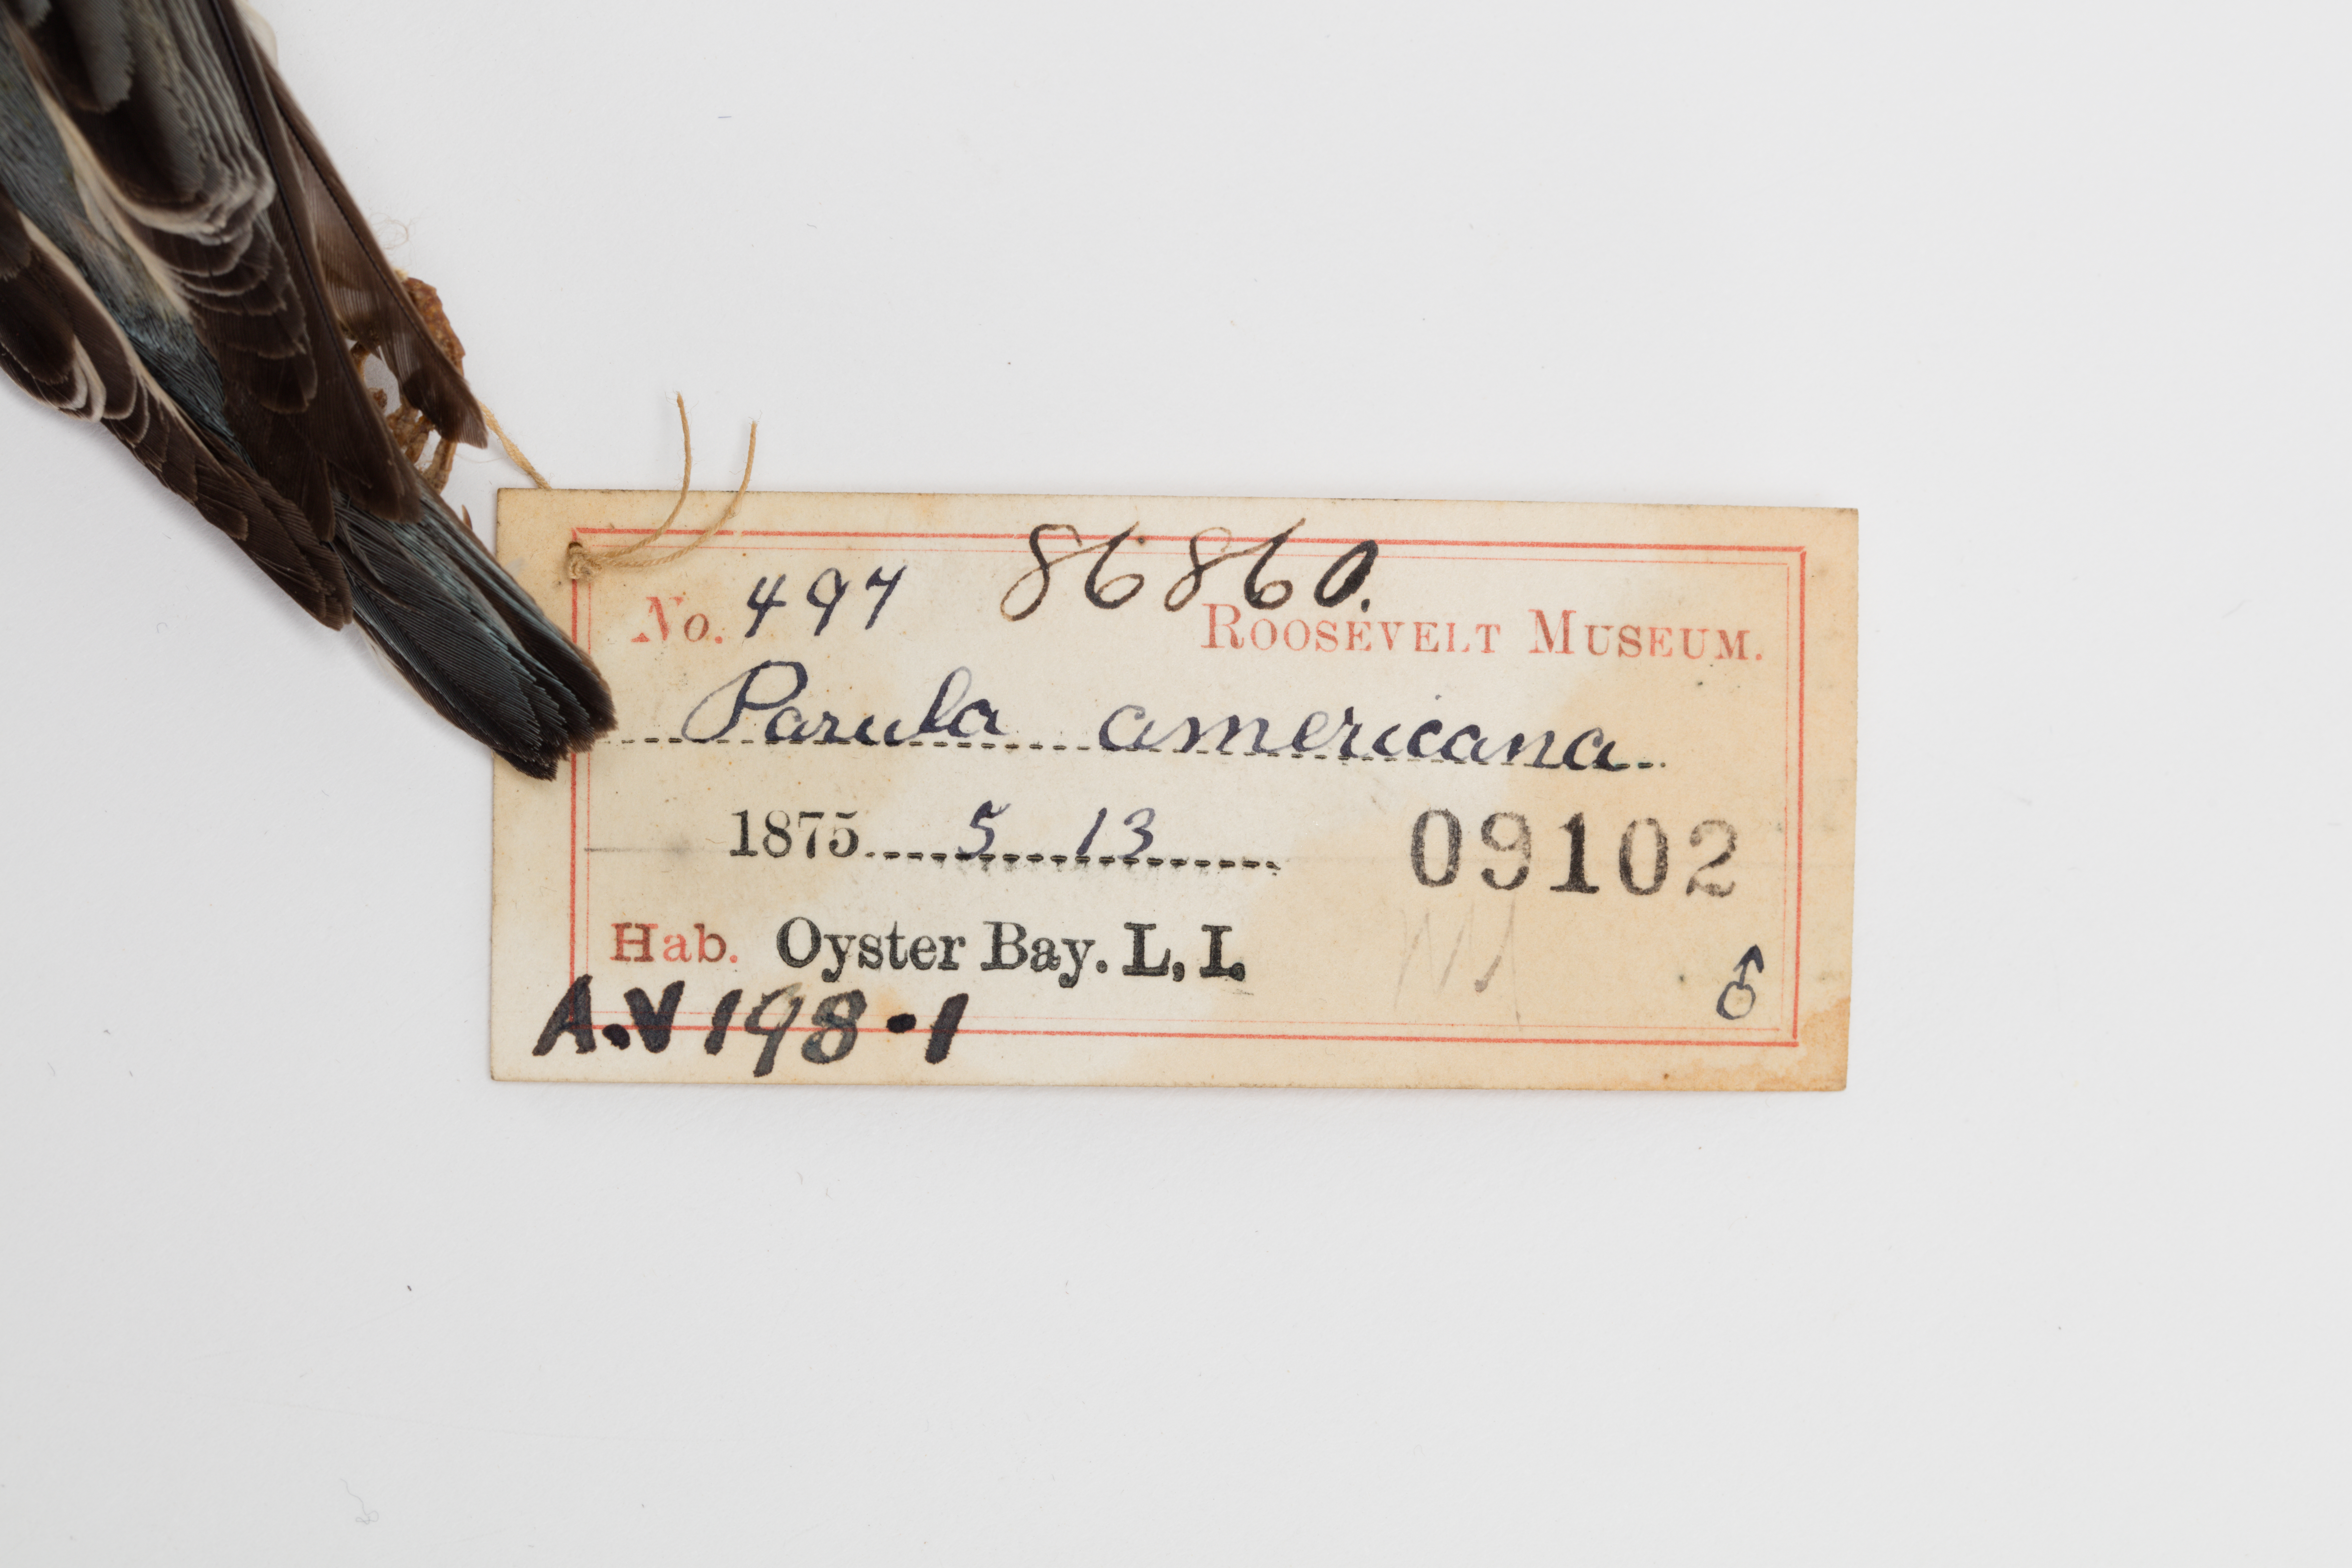 No. 497 86860.
ROOSEVELT MUSEUM.
Parula americana
1875 5 13
09102
Hab. Oyster Bay. L. I.
♂
A.V 198·1